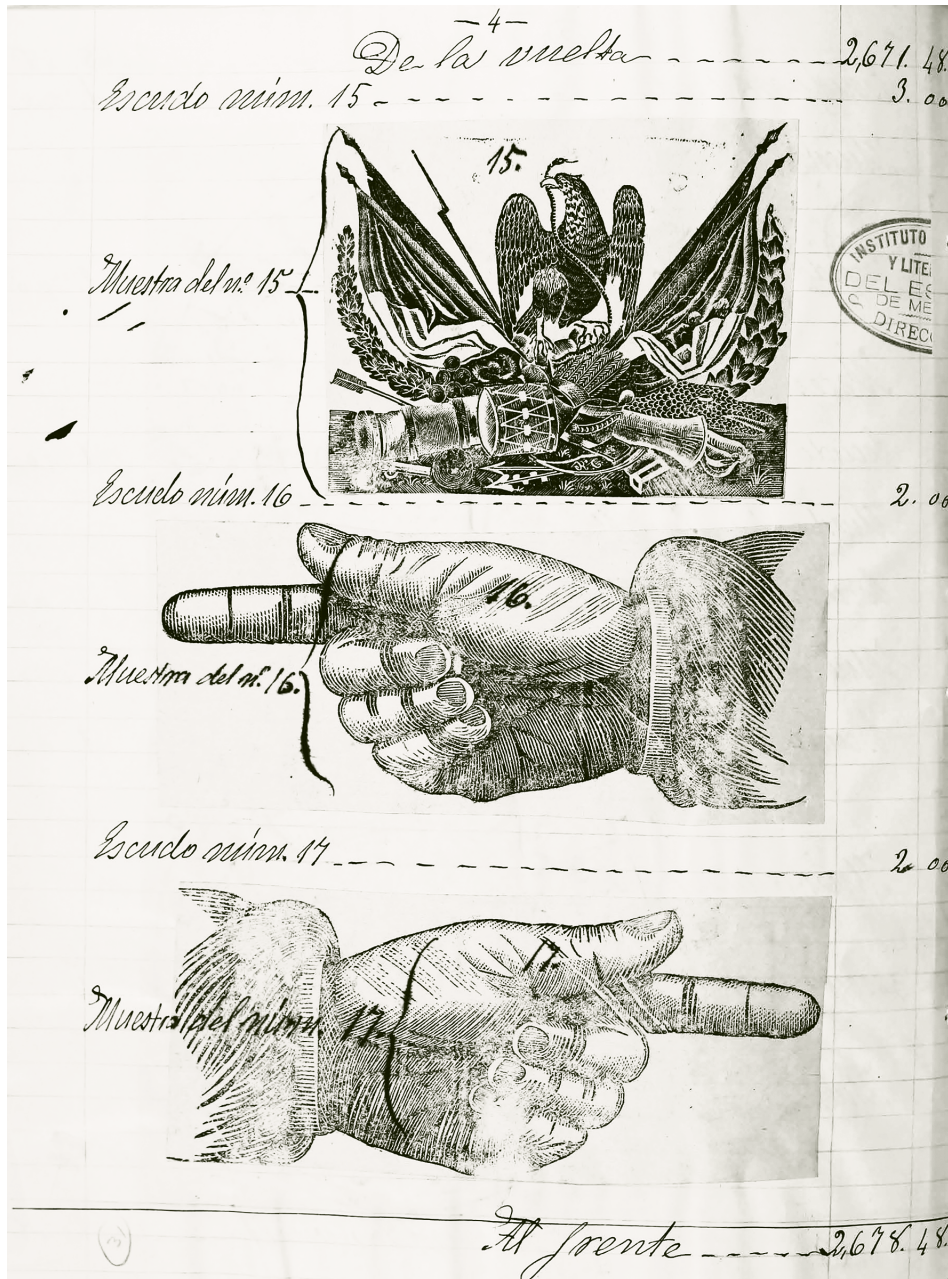 —4—
De la vuelta 2,671. 48.
Escudo núm. 15 3. 00
15.
Muestra del nº 15
INSTITUTO
Y LITE
DEL ES
DE ME
DIREC
Escudo núm. 16 2. 00
16.
Muestra del nº 16.
Escudo núm. 17 2 00
17.
Muestra del núm. 17.
Al frente 2,678. 48.